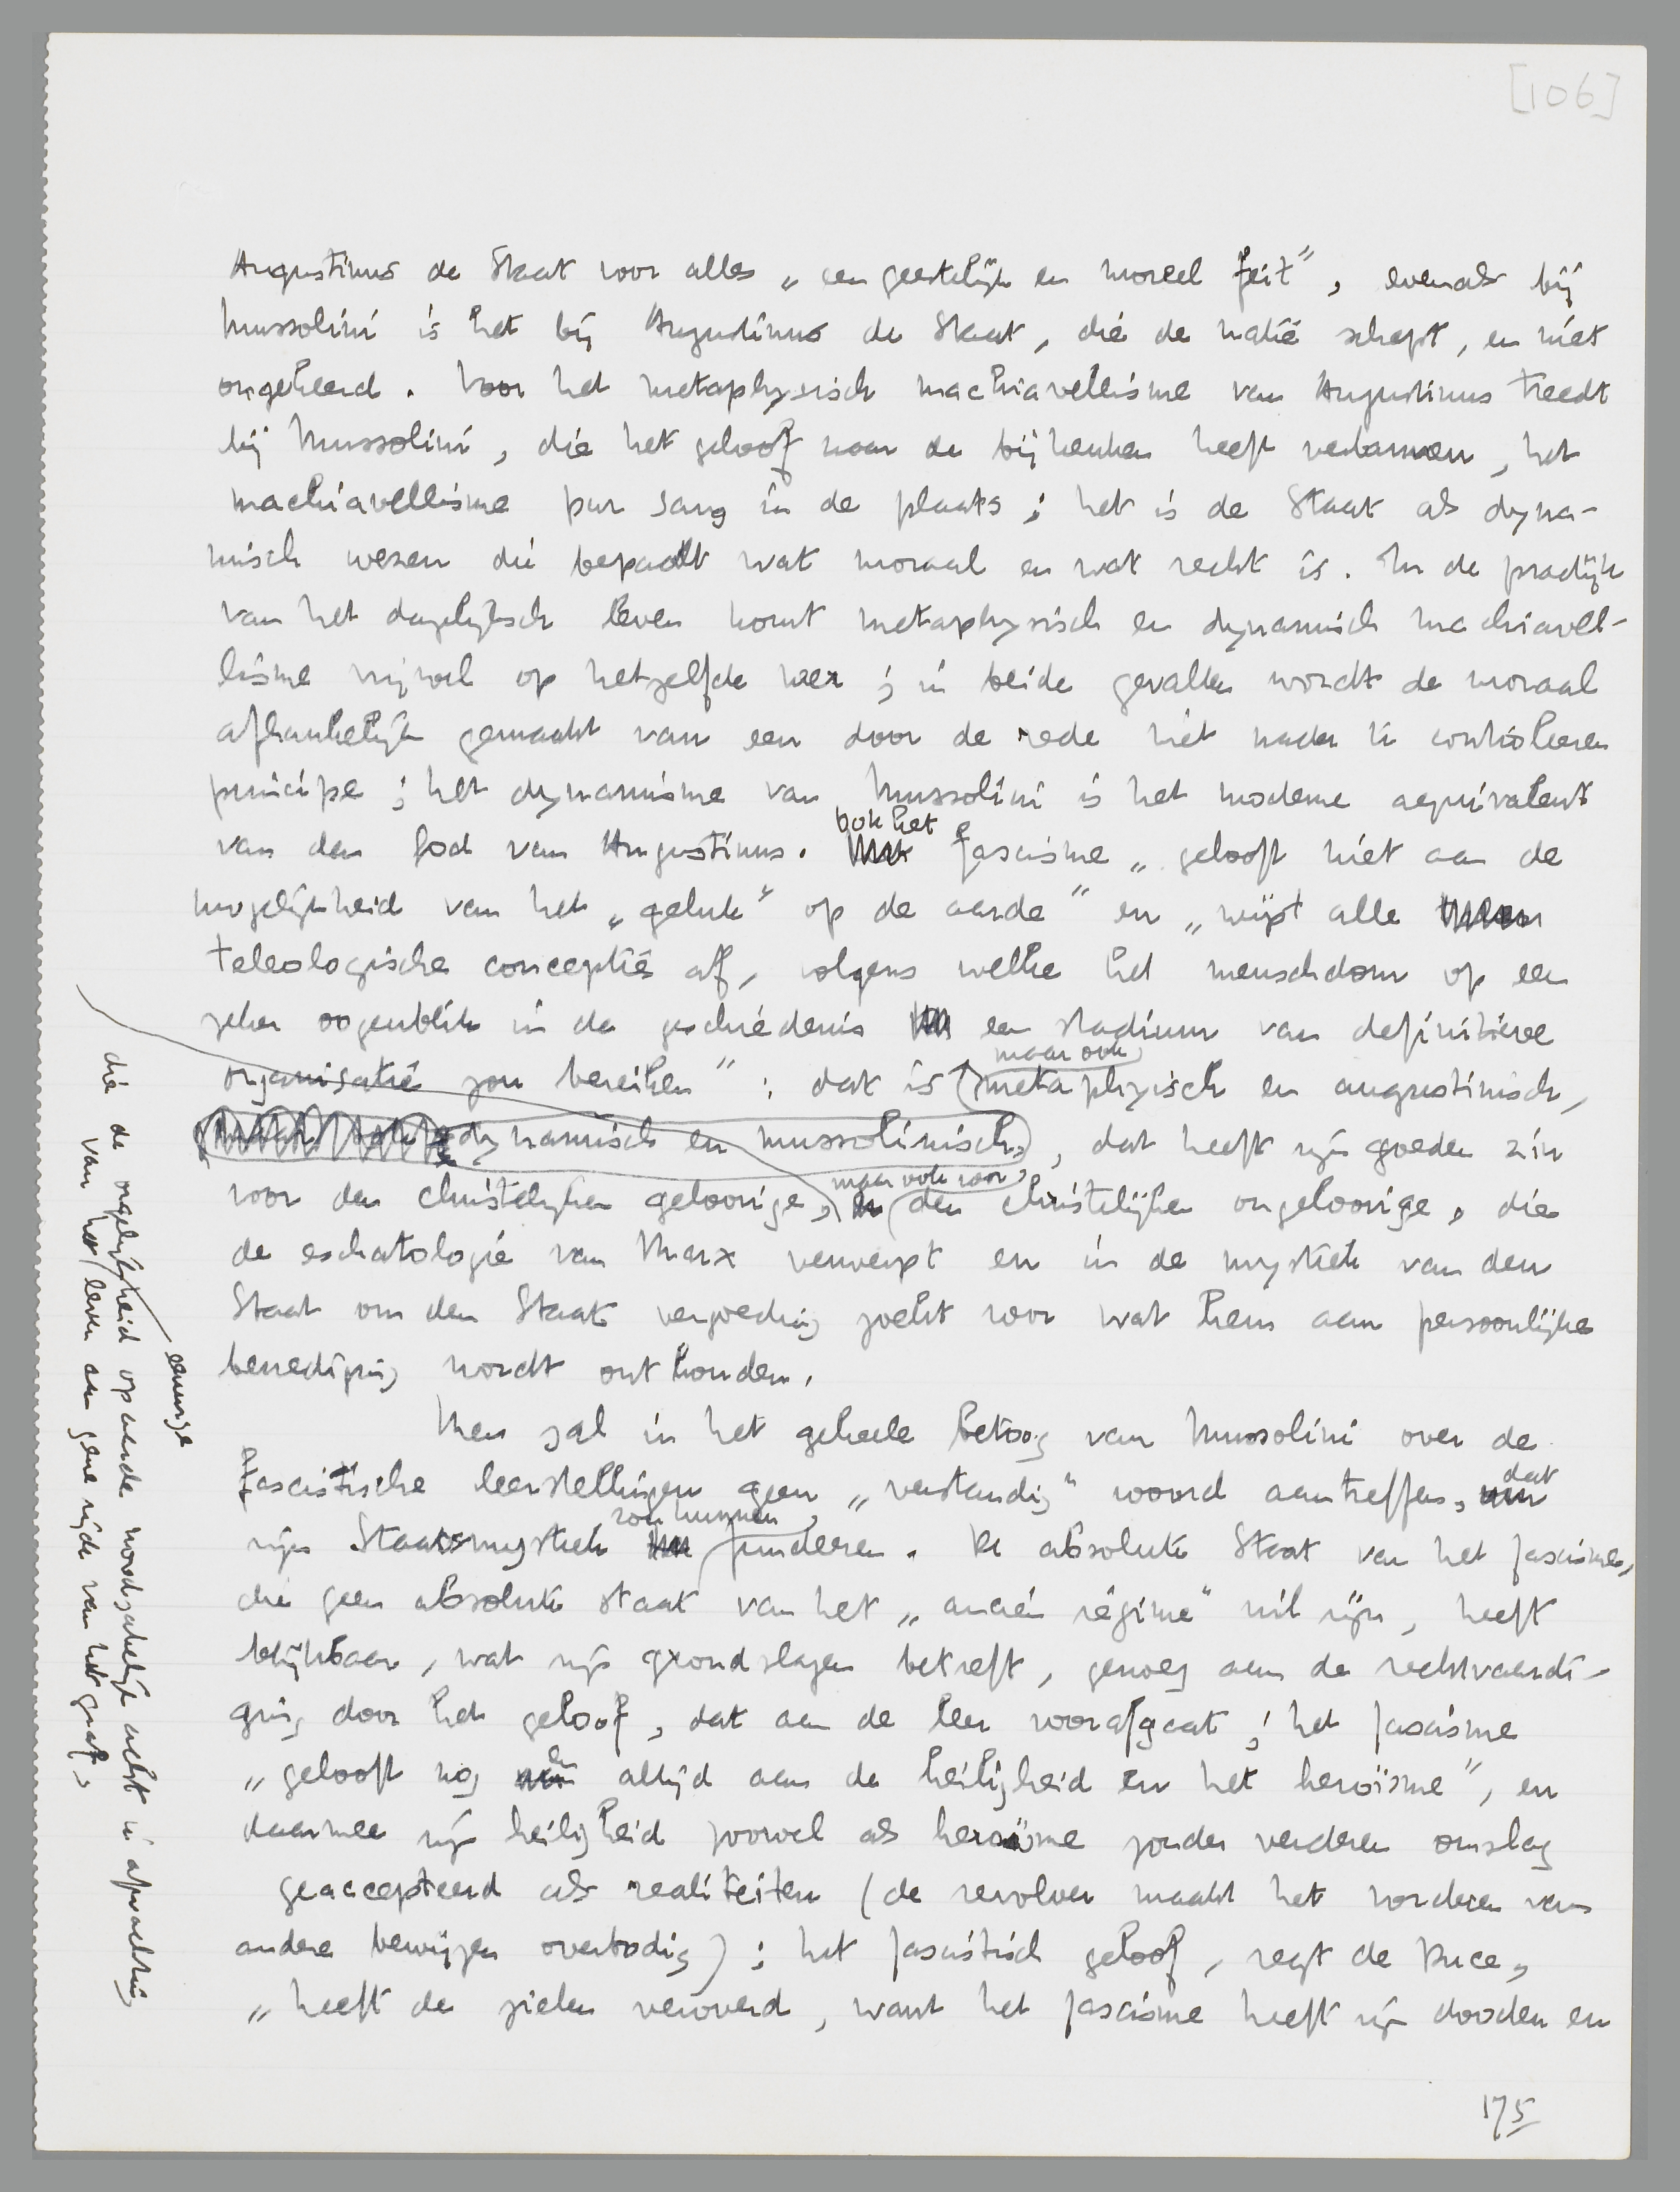 [106]
Augustinus de Staat voor alles „een geestelijk en moreel feit”, evenals bij
Mussolini is het bij Augustinus de Staat, die de natie schept, en niet
omgekeerd. Voor het metaphysisch machiavellisme van Augustinus treedt
bij Mussolini, die het geloof naar de bijkeuken heeft verbannen, het
machiavellisme pur sang in de plaats; het is de Staat als dyna-
misch wezen die bepaalt wat moraal en wat recht is. In de practijk
van het dagelijksch leven komt metaphysisch en dynamisch machiavel-
lisme vrijwel op hetzelfde neer; in beide gevallen wordt de moraal
afhankelijk gemaakt van een door de rede niet nader te controleeren
principe; het dynamisme van Mussolini is het moderne aequivalent
ook het
van den God van Augustinus. fascisme „gelooft niet aan de
mogelijkheid van het „geluk” op de aarde” en „wijst alle
teleologische conceptie af, volgens welke het menschdom op een
zeker oogenblik in de geschiedenis een stadium van definitieve
maar ook
organisatie zou bereiken”: dat is metaphysisch en augustinisch,
dynamisch en mussolinisch, dat heeft zijn goeden zin
maar ook voor
voor den christelijken geloovige, den christelijken ongeloovige, die
de eschatologie van Marx verwerpt en in de mystiek van den
Staat om den Staat vergoeding zoekt voor wat hem aan persoonlijke
bevrediging wordt onthouden.
Men zal in het geheele betoog van Mussolini over de
fascistische leerstellingen geen „verstandig” woord aantreffen, dat
zou kunnen
zijn Staatsmystiek fundeeren. De absolute Staat van het fascisme,
die geen absolute staat van het „ancien régime” wil zijn, heeft
blijkbaar, wat zijn grondslagen betreft, genoeg aan de rechtvaardi-
ging door het geloof, dat aan de leer voorafgaat; het fascisme
„gelooft nog en altijd aan de heiligheid en het heroïsme”, en
daarmee zijn heiligheid zoowel als heroïsme zonder verderen omslag
geaccepteerd als realiteiten (de revolver maakt het vorderen van
andere bewijzen overbodig); het fascistisch geloof, zegt de Duce,
„heeft de zielen veroverd, want het fascisme heeft zijn dooden en
die de ongelijkheid op aarde noodzakelijk acht in afwachting
van het eeuwige leven aan gene zijde van het graf,
175